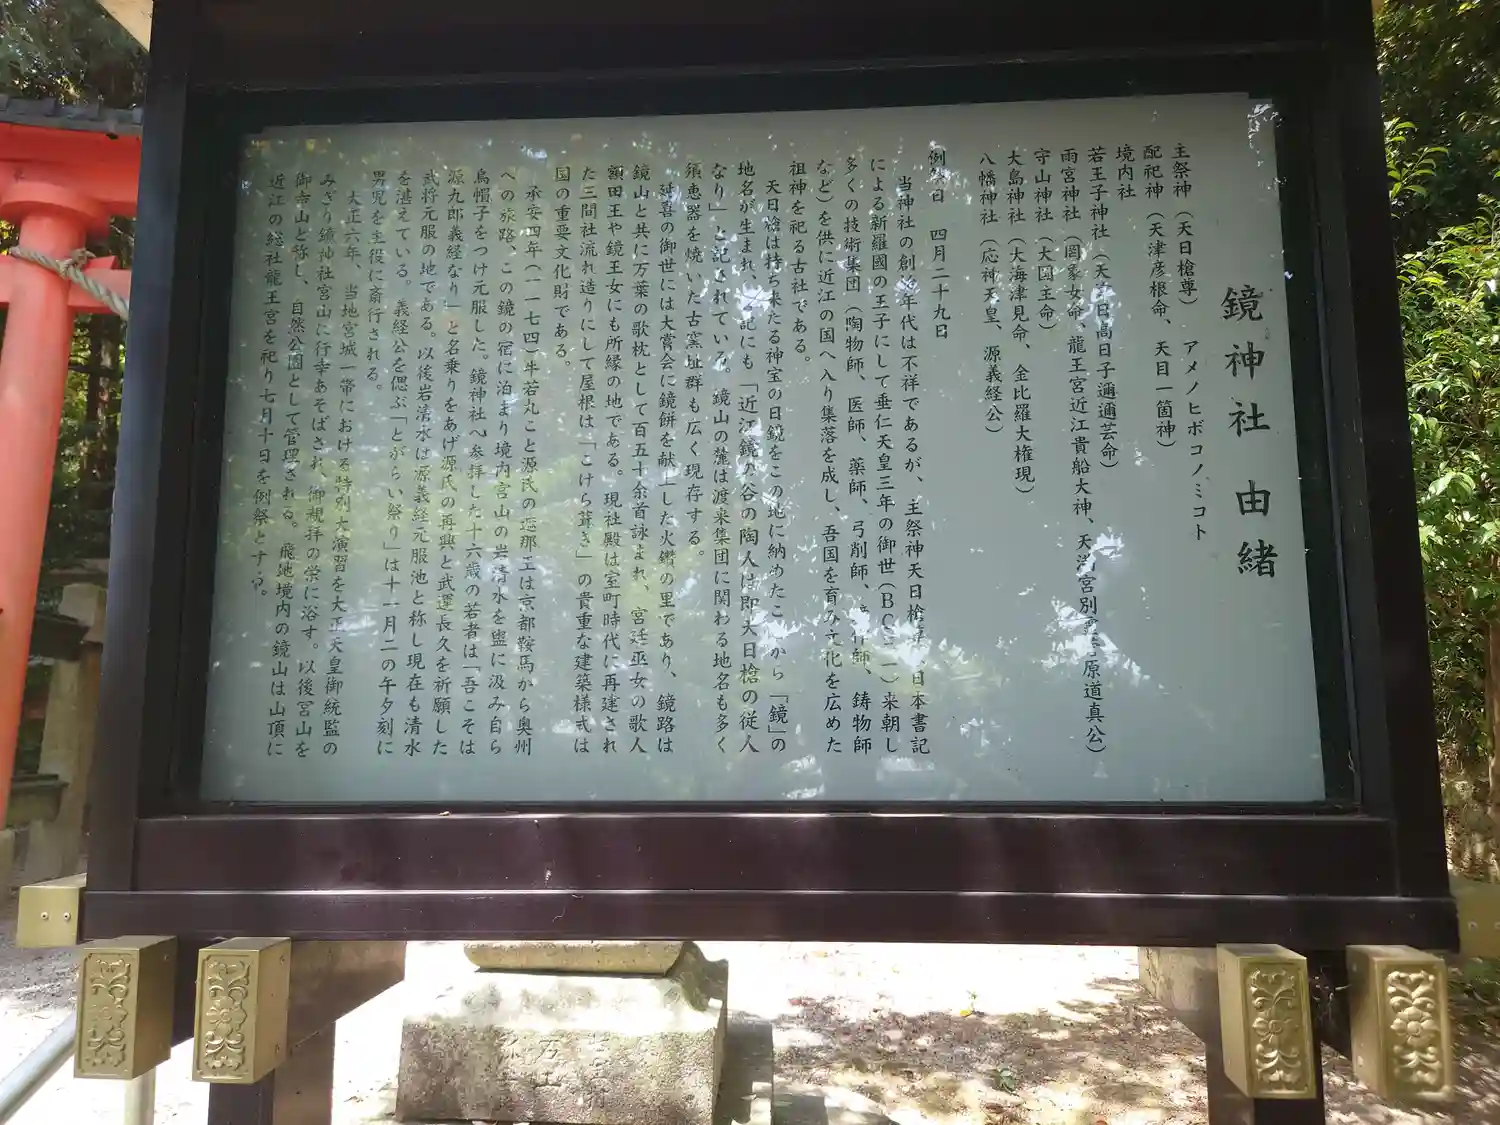 鏡神社由緒
主祭神（天日槍尊） アメノヒボコノミコト
配祀神（天津彦根命、天目一箇神）
境内社
若王子神社（天津日高日子邇邇芸命）
雨宮神社（罔象女命、龍王宮近江貴船大神、天満宮別 原道真公）
守山神社（大国主命）
大島神社（大海津見命、金比羅大権現）
八幡神社（応神天皇、源義経公）
例祭日 四月二十九日
当神社の創始年代は不祥であるが、主祭神天日槍 日本書記
による新羅國の王子にして垂仁天皇三年の御世（BC 一）来朝し
多くの技術集団（陶物師、医師、薬師、弓削師、 師、鋳物師
など）を供に近江の国へ入り集落を成し、吾国を育み文化を広めた
祖神を祀る古社である。
天日槍は持ち来たる神宝の日鏡をこの地に納めたことから「鏡」の
地名が生まれ、 記にも「近江鏡の谷の陶人は即天日槍の従人
なり」と記されている。鏡山の麓は渡来集団に関わる地名も多く
須恵器を焼いた古窯址群も広く現存する。
延喜の御世には大嘗会に鏡餅を献上した火鑽の里であり、鏡路は
鏡山と共に万葉の歌枕として百五十余首詠まれ、宮廷巫女の歌人
額田王や鏡王女にも所縁の地である。現社殿は室町時代に再建され
た三間社流れ造りにして屋根は「こけら葺き」の貴重な建築様式は
国の重要文化財である。
承安四年（一一七四）牛若丸こと源氏の遮那王は京都鞍馬から奥州
への旅路、この鏡の宿に泊まり境内宮山の岩清水を盥に汲み自ら
烏帽子をつけ元服した。鏡神社へ参拝した十六歳の若者は「吾こそは
源九郎義経なり」と名乗りをあげ源氏の再興と武運長久を祈願した
武将元服の地である。以後岩清水は源義経元服池と称し現在も清水
を湛えている。義経公を偲ぶ「とがらい祭り」は十一月二の午夕刻に
男児を主役に斎行される。
大正六年、当地宮城一帯における特別大演習を大正天皇御統監の
みぎり鏡神社宮山に行幸あそばされ、御親拝の栄に浴す。以後宮山を
御幸山と称し、自然公園として管理される。飛地境内の鏡山は山頂に
近江の総社龍王宮を祀り七月十日を例祭とする。